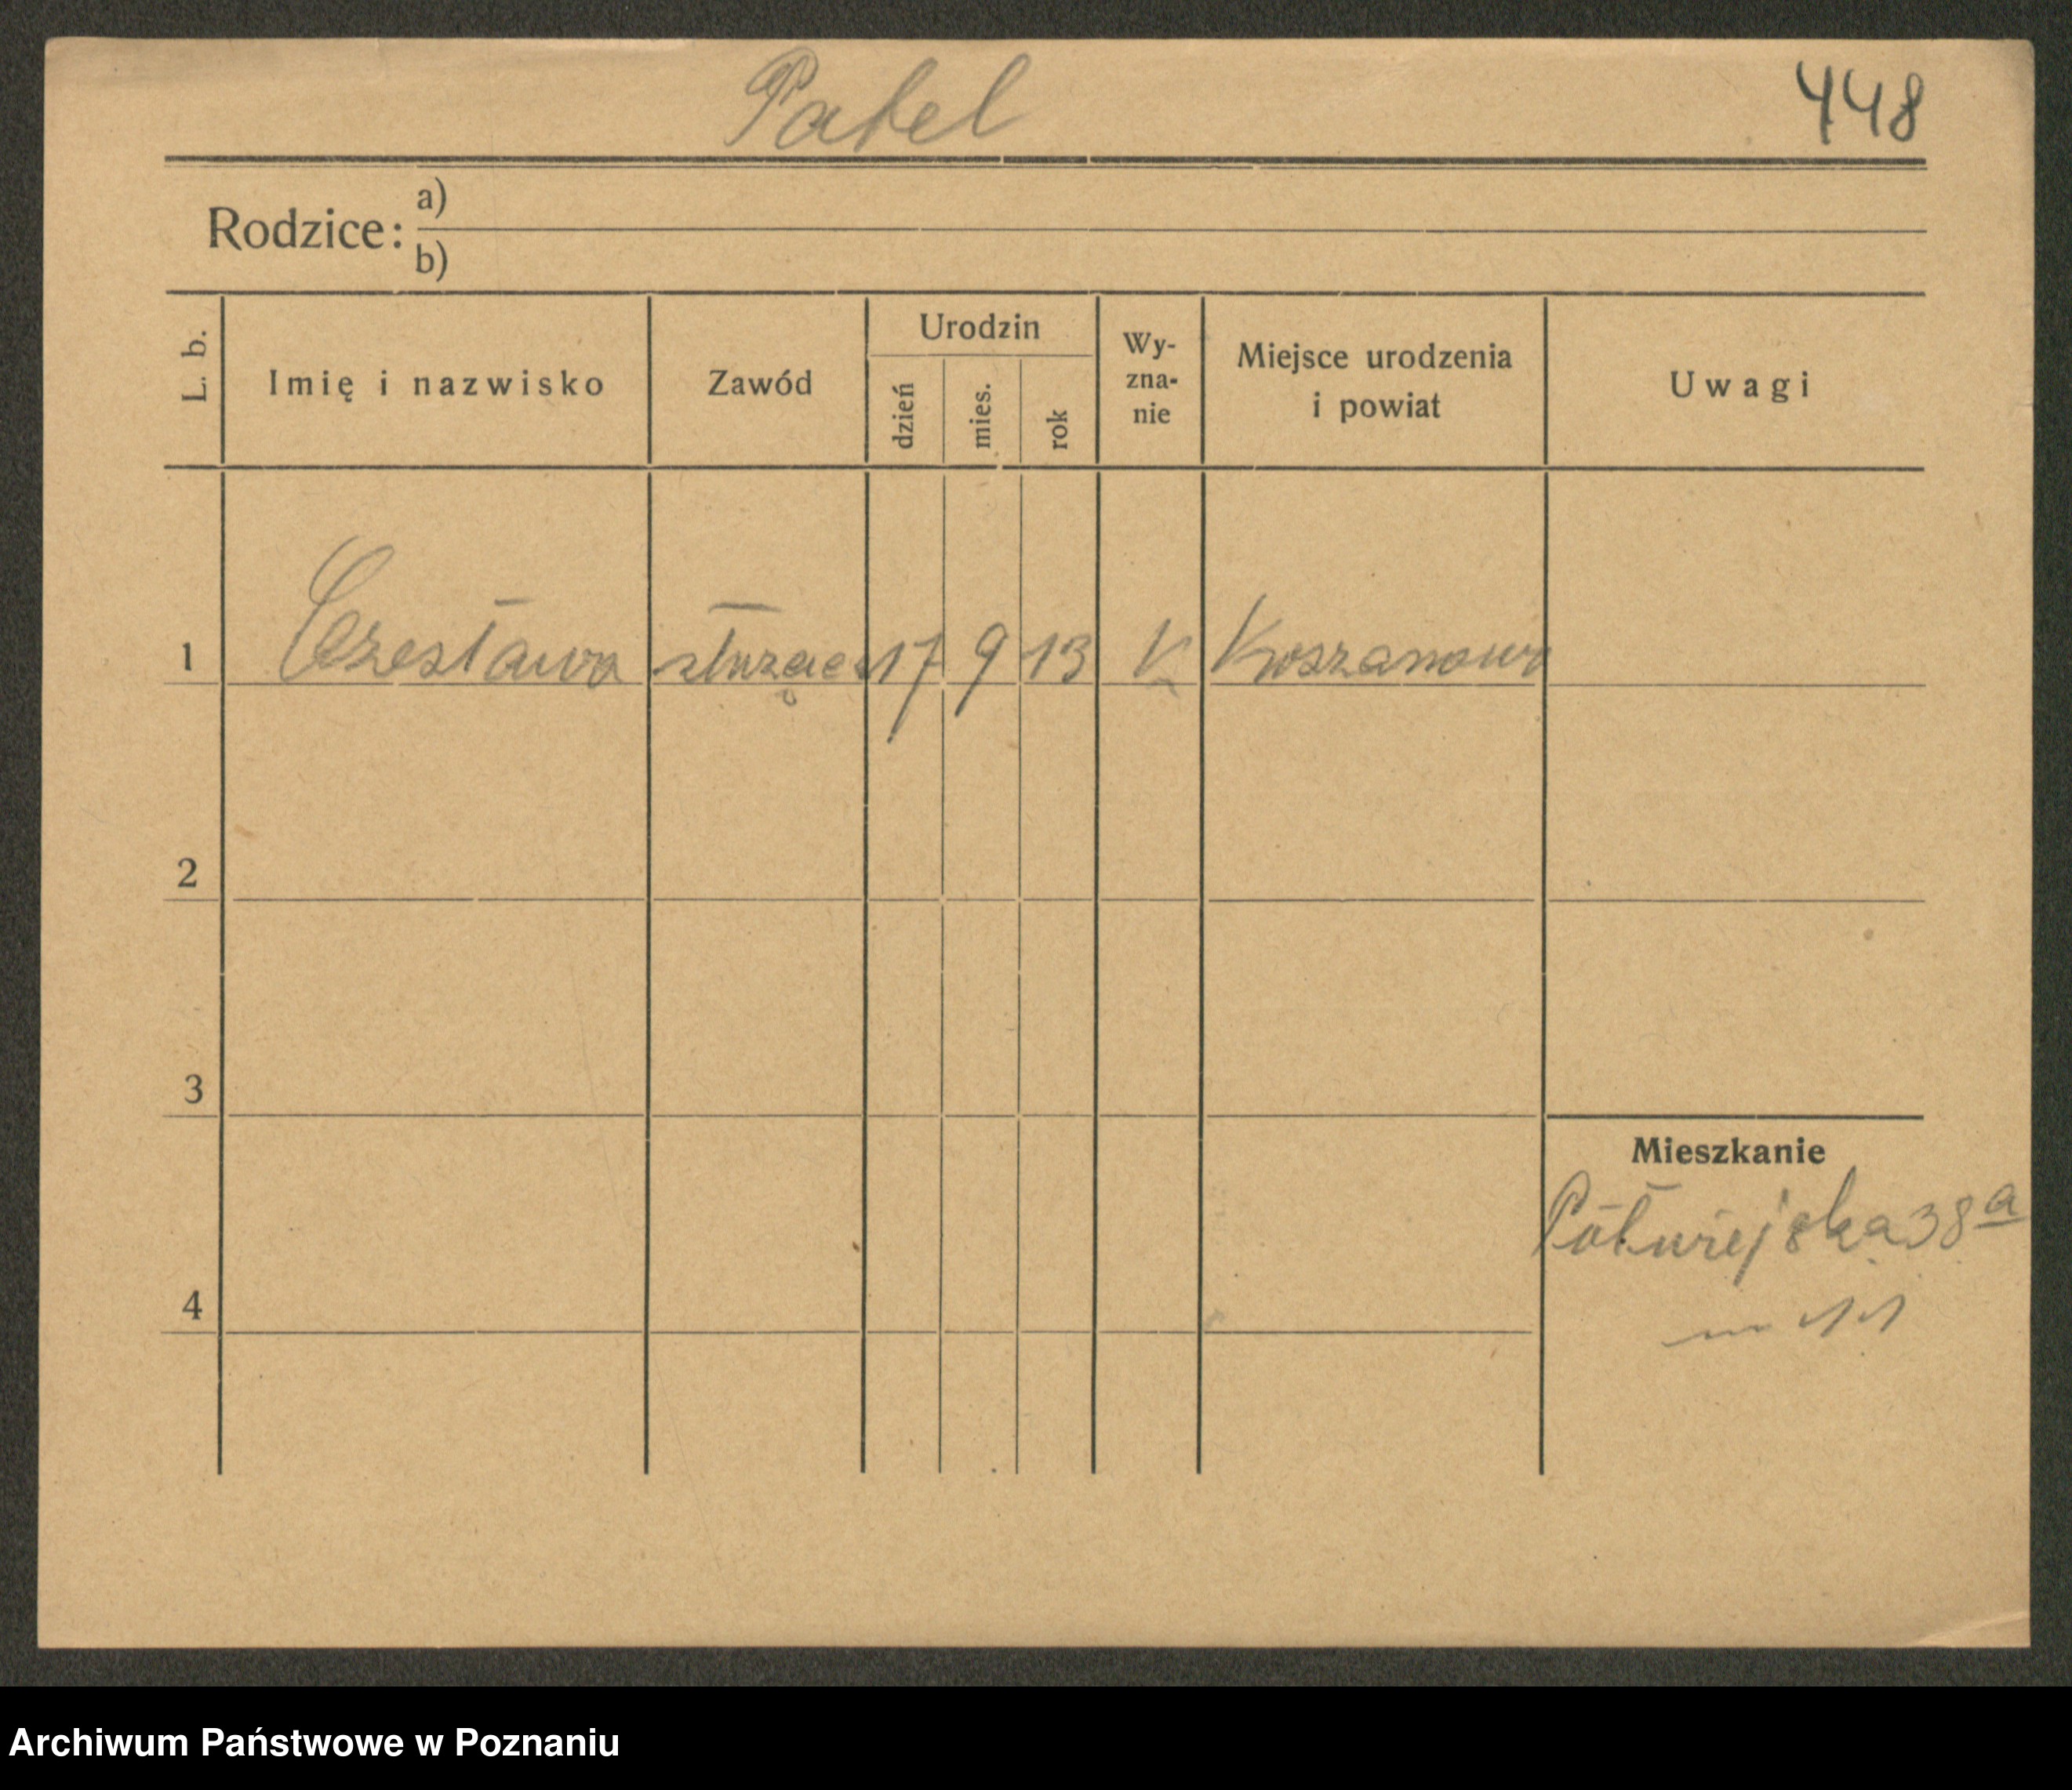 Patel 448
Rodzice: a)
b)
L. b. Imię i nazwisko Zawód Urodzin dzień mies. rok Wy-zna-nie Miejsce urodzenia i powiat Uwagi
1 Czesława służąca 17 9 13 K Koszanowo
2
3
Mieszkanie
Półwiejska 38a
m 11
4
Archiwum Państwowe w Poznaniu